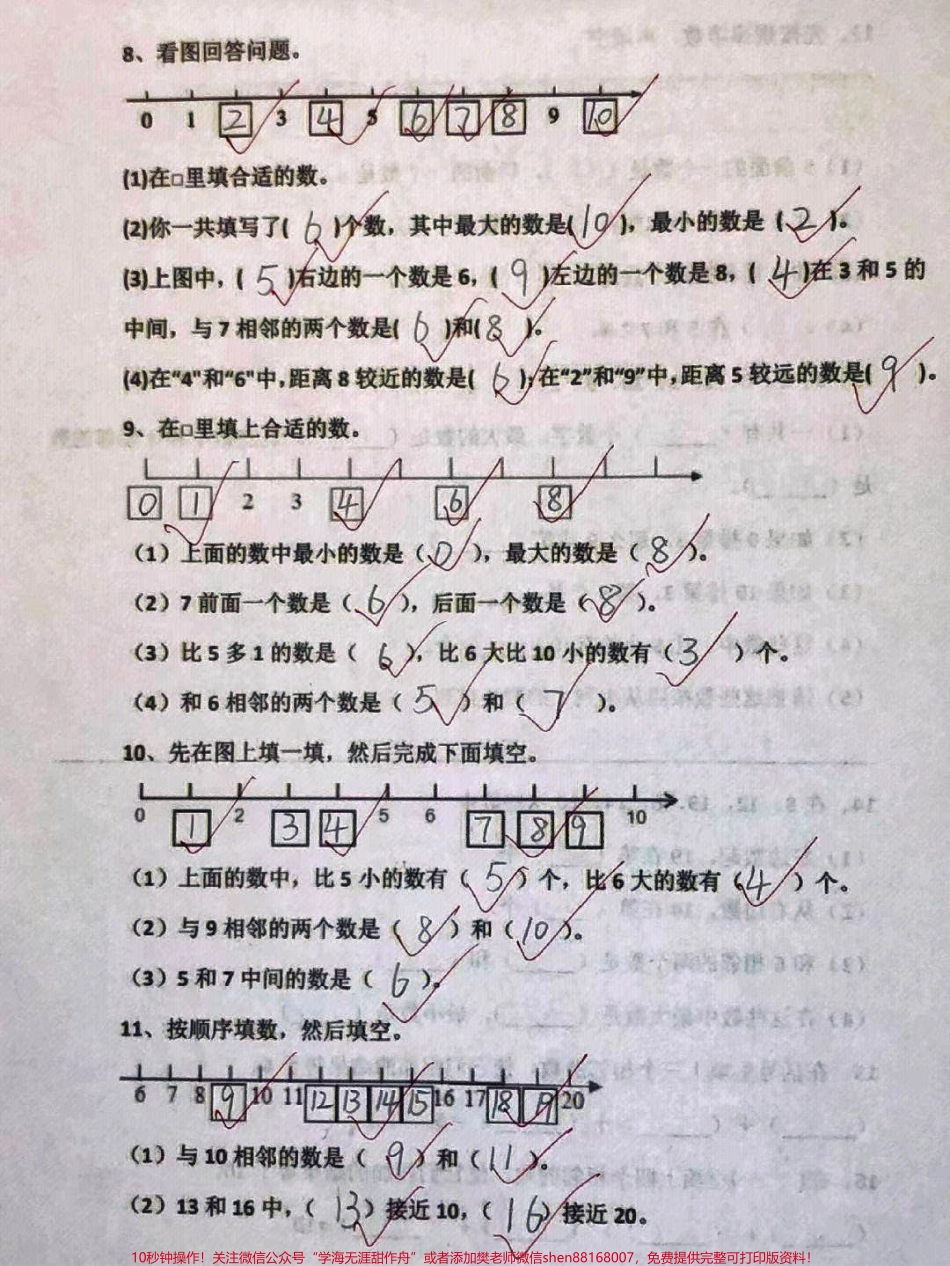 8、看图回答问题。
0 1 2 3 4 5 6 7 8 9 10
(1)在□里填合适的数。
(2)你一共填写了( 6 )个数，其中最大的数是( 10 )，最小的数是（ 2 ）。
(3)上图中，( 5 )右边的一个数是6，( 9 )左边的一个数是8，( 4 )在3和5的
中间，与7相邻的两个数是( 6 )和( 8 )。
(4)在“4”和“6”中，距离8较近的数是( 6 )；在“2”和“9”中，距离5较远的数是( 9 )。
9、在□里填上合适的数。
0 1 2 3 4 6 8
（1）上面的数中最小的数是（ 0 ），最大的数是（ 8 ）。
（2）7前面一个数是（ 6 ），后面一个数是（ 8 ）。
（3）比5多1的数是（ 6 ），比6大比10小的数有（ 3 ）个。
（4）和6相邻的两个数是（ 5 ）和（ 7 ）。
10、先在图上填一填，然后完成下面填空。
0 1 2 3 4 5 6 7 8 9 10
（1）上面的数中，比5小的数有（ 5 ）个，比6大的数有（ 4 ）个。
（2）与9相邻的两个数是（ 8 ）和（ 10 ）。
（3）5和7中间的数是（ 6 ）。
11、按顺序填数，然后填空。
6 7 8 9 10 11 12 13 14 15 16 17 18 19 20
（1）与10相邻的数是（ 9 ）和（ 11 ）。
（2）13和16中，（ 13 ）接近10，（ 16 ）接近20。
10秒钟操作！关注微信公众号“学海无涯甜作舟”或者添加樊老师微信shen88168007，免费提供完整可打印版资料！